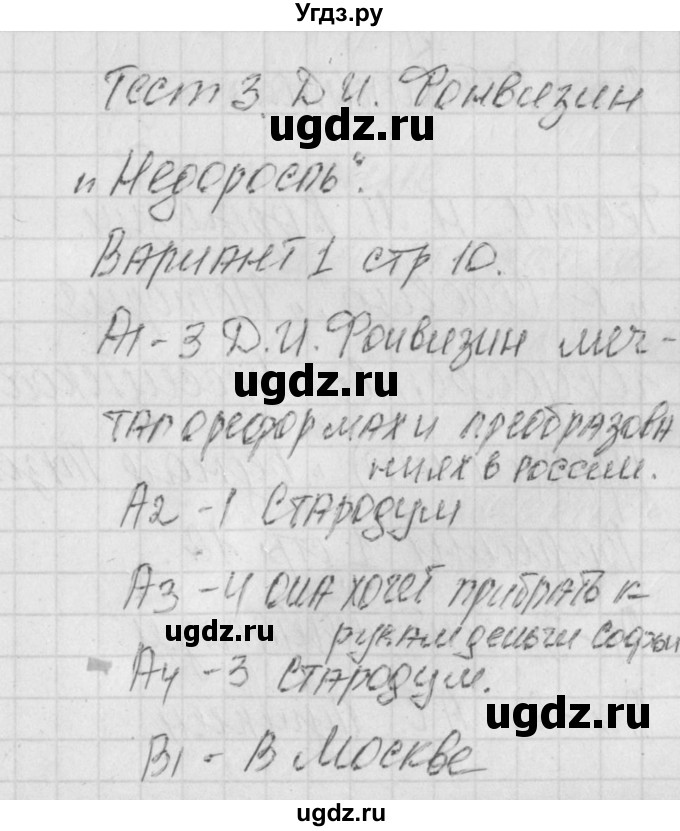 Угдз.ру
Тест 3 Д.И. Фонвизин
ugdz.ru
"Недоросль".
Вариант 1 стр 10.
А1 - 3 Д.И. Фонвизин меч-
ugdz.ru
тал ореформах и преобразова
ниях в России.
А2 - 1 Стародум
А3 - 4 она хочет прибрать к
ugdz.ru
рукам деньги Софьи
А4 - 3 Стародум.
ugdz.ru
В1 - В Москве
ugdz.ru